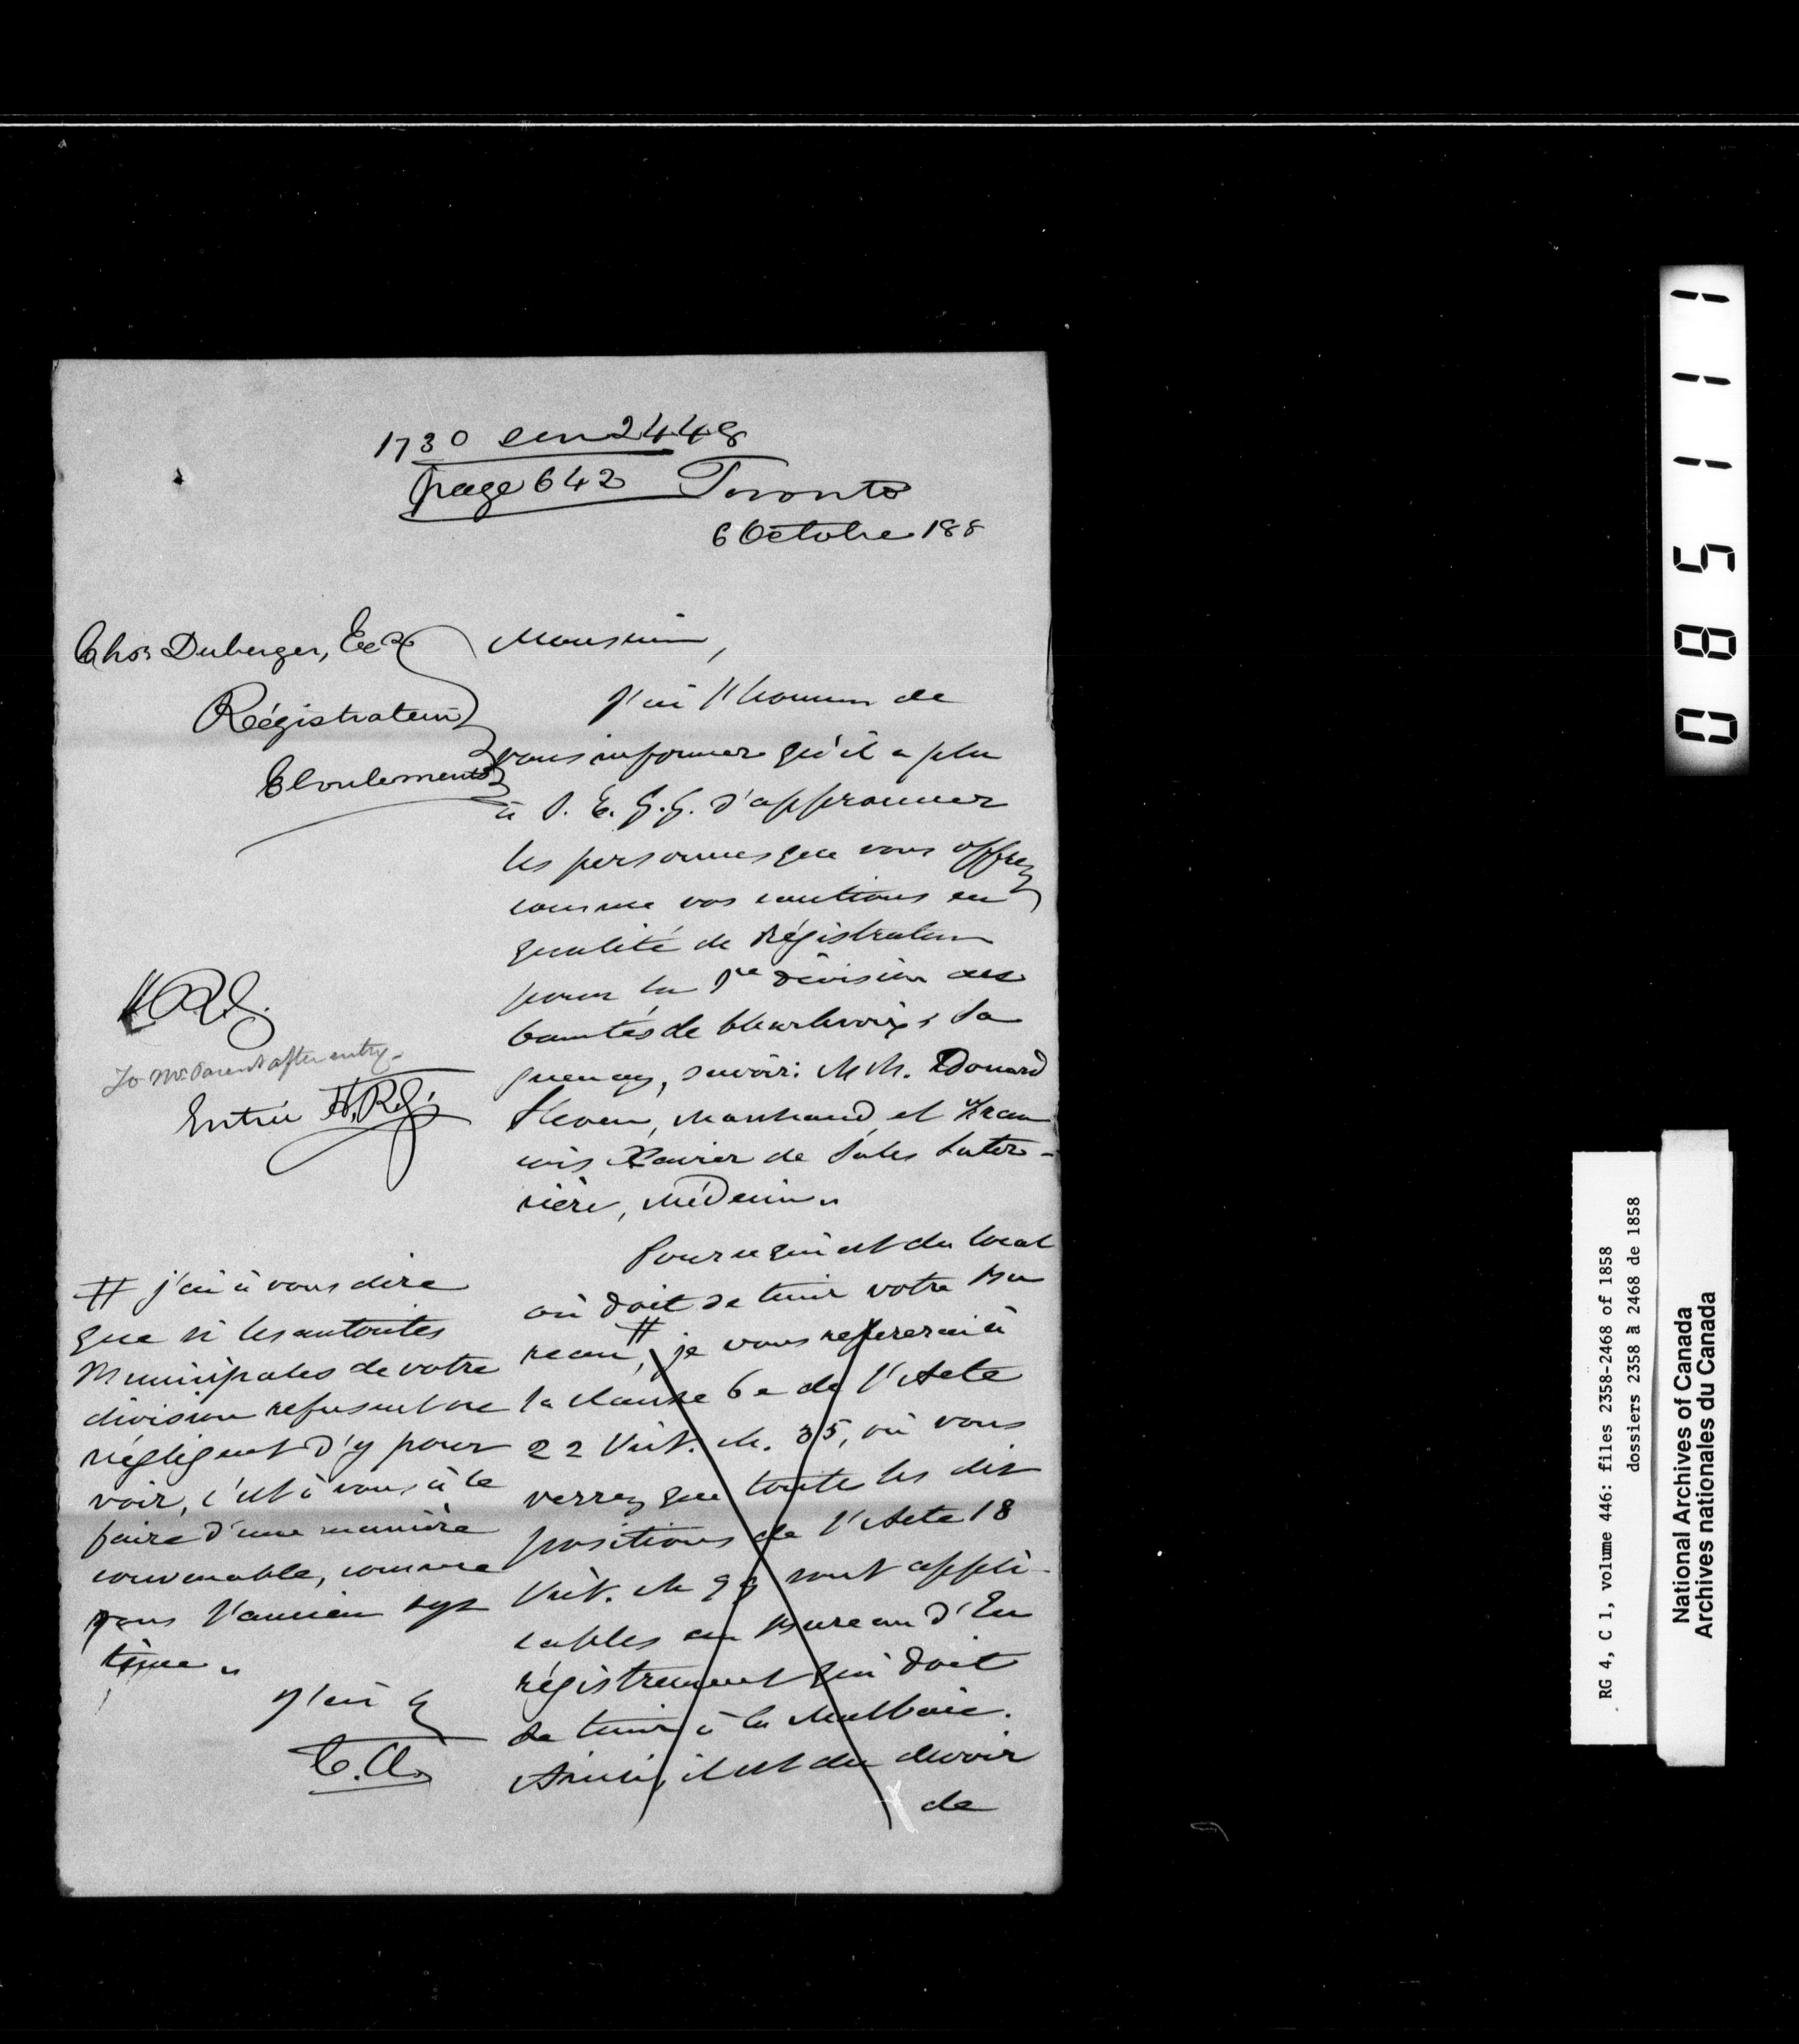 1730 sur 2448
page 642 Toronto
6 Octobre 188
Chs Duberger, Ecr
Régistrateur
Eboulements
Monsieur,
J'ai l'honneur de
vous informer qu'il a plu
à S. E. G. G. d'approuver
les personnes que vous offrez
comme vos cautions en
qualité de Régistrateur
pour la 1re division des
Comtés de Charlevoix & Sa
guenay, savoir: MM. Edouard
Sleven, Marchand, et Fran
cois Xavier de Sales Later-
rière, Médecin.
Pour ce qui est du local
où doit se tenir votre Bu
reau, # je vous refererai à
la clause 6e de l'Acte
22 Vict. ch. 35, où vous
verrez que toute les dis
positions de l'Acte 18
Vict. ch 99 sont appli-
cables au Bureau d'En
régistrement qui doit
se tenir à la Malbaie.
Ainsi, il est du devoir
de
H.R.J.
To Mr. Parent after entry.
Entrée H.R.J.
# j'ai à vous dire
que si les autorités
Municipales de votre
division refusent ou
négligent d'y pour
voir, c'est à vous à le
faire d'une manière
convenable, comme
sous l'ancien sys
tème.
J'ai &
C.A.
085111
RG 4, C 1, volume 446: files 2358-2468 of 1858
dossiers 2358 à 2468 de 1858
National Archives of Canada
Archives nationales du Canada